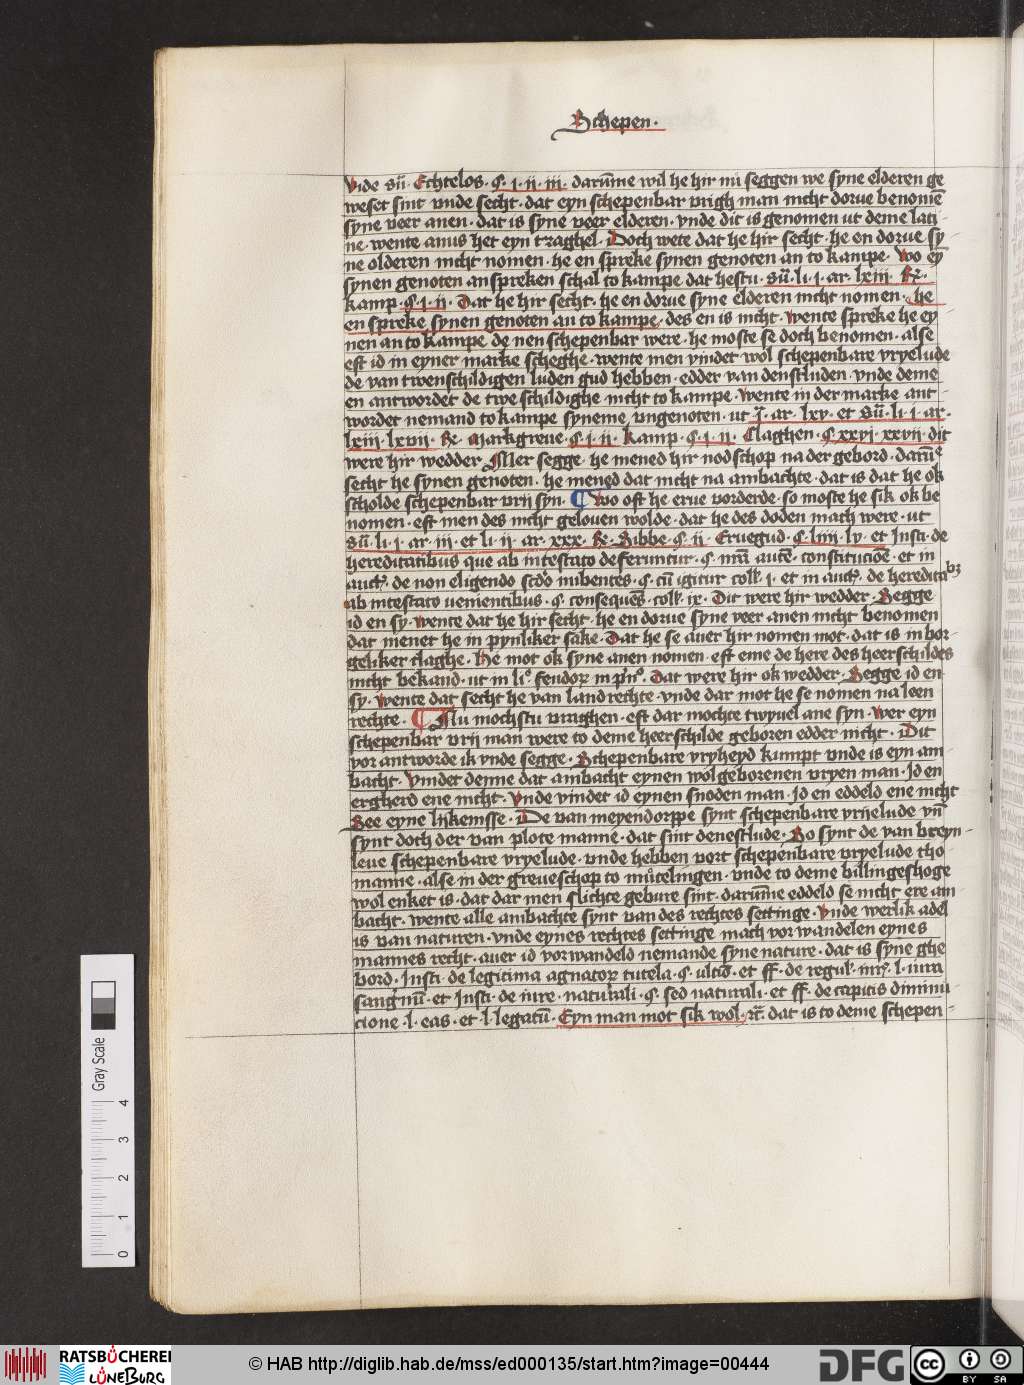 Schepen.
Vide sū. Echtelos. ꝯ. j. ij. iij. darūme wil he hir nu seggen we syne elderen ge
weset sint vnde secht. dat eyn schepenbar vrigh man nicht dorue benomē
syne veer anen. dat is syne veer elderen. vnde dit is genomen ut deme lati
ne. wente anus het eyn traghel. Doch wete dat he hir secht. he en dorue sy-
ne olderen nicht nomen. he en spreke synen genoten an to kampe. Wo ey
synen genoten anspreken schal to kampe dat hestu. sū. li. j. ar. lxiij. R.
kamp. ꝯ. j. ij. Dat he hir secht. he en dorue syne elderen nicht nomen. he
en spreke synen genoten an to kampe. des en is nicht. wente spreke he ey
nen an to kampe de nen schepenbar were. he moste se doch benomen. alse
est id in eyner marke scheghe. wente men vindet wol schepenbare vryelude
de van twenschildigen luden gud hebben. edder van denstluden. vnde deme
en antwordet de twe schildighe nicht to kampe. wente in der marke ant-
wordet nemand to kampe syneme vngenoten. ut j. ar. lxv. et sū. li. j. ar.
lxiij. lxvij. R. Markgreue. ꝯ. j. ij. Kamp. ꝯ. j. ij. Claghen. ꝯ. xxvj. xxvij. dit
were hir wedder. Mer segge. he mened hir nodschop na der gebord. darūe
secht he synen genoten. he mened dat nicht na ambachte. dat is dat he ok
scholde schepenbar vrij syn. ¶ Wo oft he erue vorderde. so moste he sik ok be
nomen. est men des nicht geloven wolde. dat he des doden mach were. ut
sū. li. j. ar. iij. et li. ij. ar. xxx. R. Sibbe. ꝯ. ij. Eruegud. ꝯ. liiij. lv. et Insti. de
hereditatibus que ab intestato deferuntur. ꝯ. mrā. autē. constitucioē. et in
auct. de non eligendo scdo nubentes. ꝯ. cū igitur coll. j. et in auct. de heredita bꝫ
ab intestato uenientibus. ꝯ. consequēs. coll. ix. Dit were hir wedder. Segge
id en sy. wente dat he hir secht. he en dorue syne veer anen nicht benomen
dat menet he in pynliker sake. Dat he se auer hir nomen mot. dat is in bor-
geliker claghe. He mot ok syne anen nomen. est eme de here des heerschildes
nicht bekand. ut in li. feudoꝝ in pn. Dat were hir ok wedder. Segge id en
sy. wente dat secht he van landrechte. vnde dar mot he se nomen na leen
rechte. ¶ Nu mochstu vraghen. est dar mochte twyuel ane syn. wer eyn
schepenbar vrij man were to deme heerschilde geboren edder nicht. Dit
vor antworde ik vnde segge. Schepenbare vryheyd kumpt vnde is eyn am-
bacht. Vindet denne dat ambacht eynen wolgeborenen vryen man. Id en
ergherd ene nicht. Vnde vindet id eynen snoden man. Id en eddeld ene nicht
See eyne lijkemsse. De van meyendorppe synt schepenbare vrijelude vn̄
synt doch der van plote manne. dat sint denestlude. So synt de van breyn-
leue schepenbare vryelude. vnde hebben vort schepenbare vryelude tho
manne. alse in der greueschop to mutelingen. vnde to deme billingeshoge
wol enket is. dat dar men slichte gebure sint. darūme eddeld se nicht ere am
bacht. wente alle ambachte synt van des rechtes settinge. Vnde werlik adel
is van naturen. vnde eynes rechtes settinge mach vorwandelen eynes
mannes recht. auer id vorwandeld nemande syne nature. dat is syne ghe
bord. Insti. de legitima agnatoꝝ tutela. ꝯ. ultio. et ff. de regul. iur. l. iura
sangnū. et Insti. de iure. naturali. ꝯ. sed naturali. et ff. de capitis diminu-
cione. l. eas. et l. legatū. Eyn man mot sik wol. ꝛc. dat is to deme schepen-
Gray Scale
0 1 2 3 4
RATSBÜCHEREI
LÜNEBURG
© HAB http://diglib.hab.de/mss/ed000135/start.htm?image=00444
DFG
cc BY SA